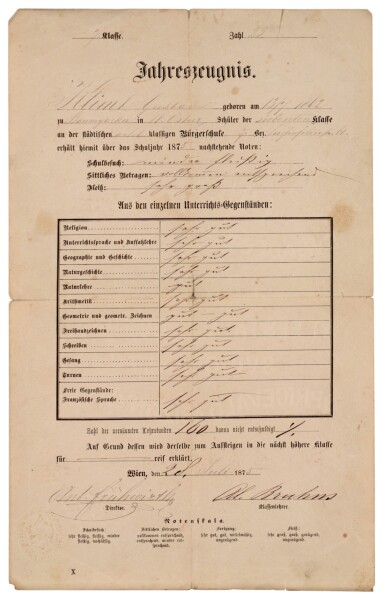 7 Klasse. Zahl
Jahreszeugnis.
Klimt Gustav geboren am 14/7 1862
zu Baumgarten in N. Östr. Schüler der siebenten Klasse
an der städtischen klassigen Bürgerschule Bez.
erhält hiemit über das Schuljahr 187 nachstehende Noten:
Schulbesuch: minder fleißig
Sittliches Betragen: vollkommen entsprechend
Fleiß: sehr groß
Aus den einzelnen Unterrichts-Gegenständen:
Religion sehr gut
Unterrichtssprache und Aufsatzlehre sehr gut
Geographie und Geschichte sehr gut
Naturgeschichte sehr gut
Naturlehre gut
Arithmetik sehr gut
Geometrie und geometr. Zeichnen gut
Freihandzeichnen sehr gut
Schreiben sehr gut
Gesang sehr gut
Turnen sehr gut
Freie Gegenstände:
Französische Sprache sehr gut
Zahl der versäumten Lehrstunden 160 davon nicht entschuldigt %
Auf Grund dessen wird derselbe zum Aufsteigen in die nächst höhere Klasse
für reif erklärt.
Wien, den 28 Juli 187
Direktor. Klassenlehrer.
Notenskala.
Schulbesuch: Sittliches Betragen: Fortgang: Fleiß:
Sehr fleißig, fleißig, minder vollkommen entsprechend, Sehr gut, gut, mittelmäßig, Sehr groß, groß, genügend,
fleißig, nachlässig. entsprechend, minder ent- ungenügend. ungenügend.
sprechend.
X